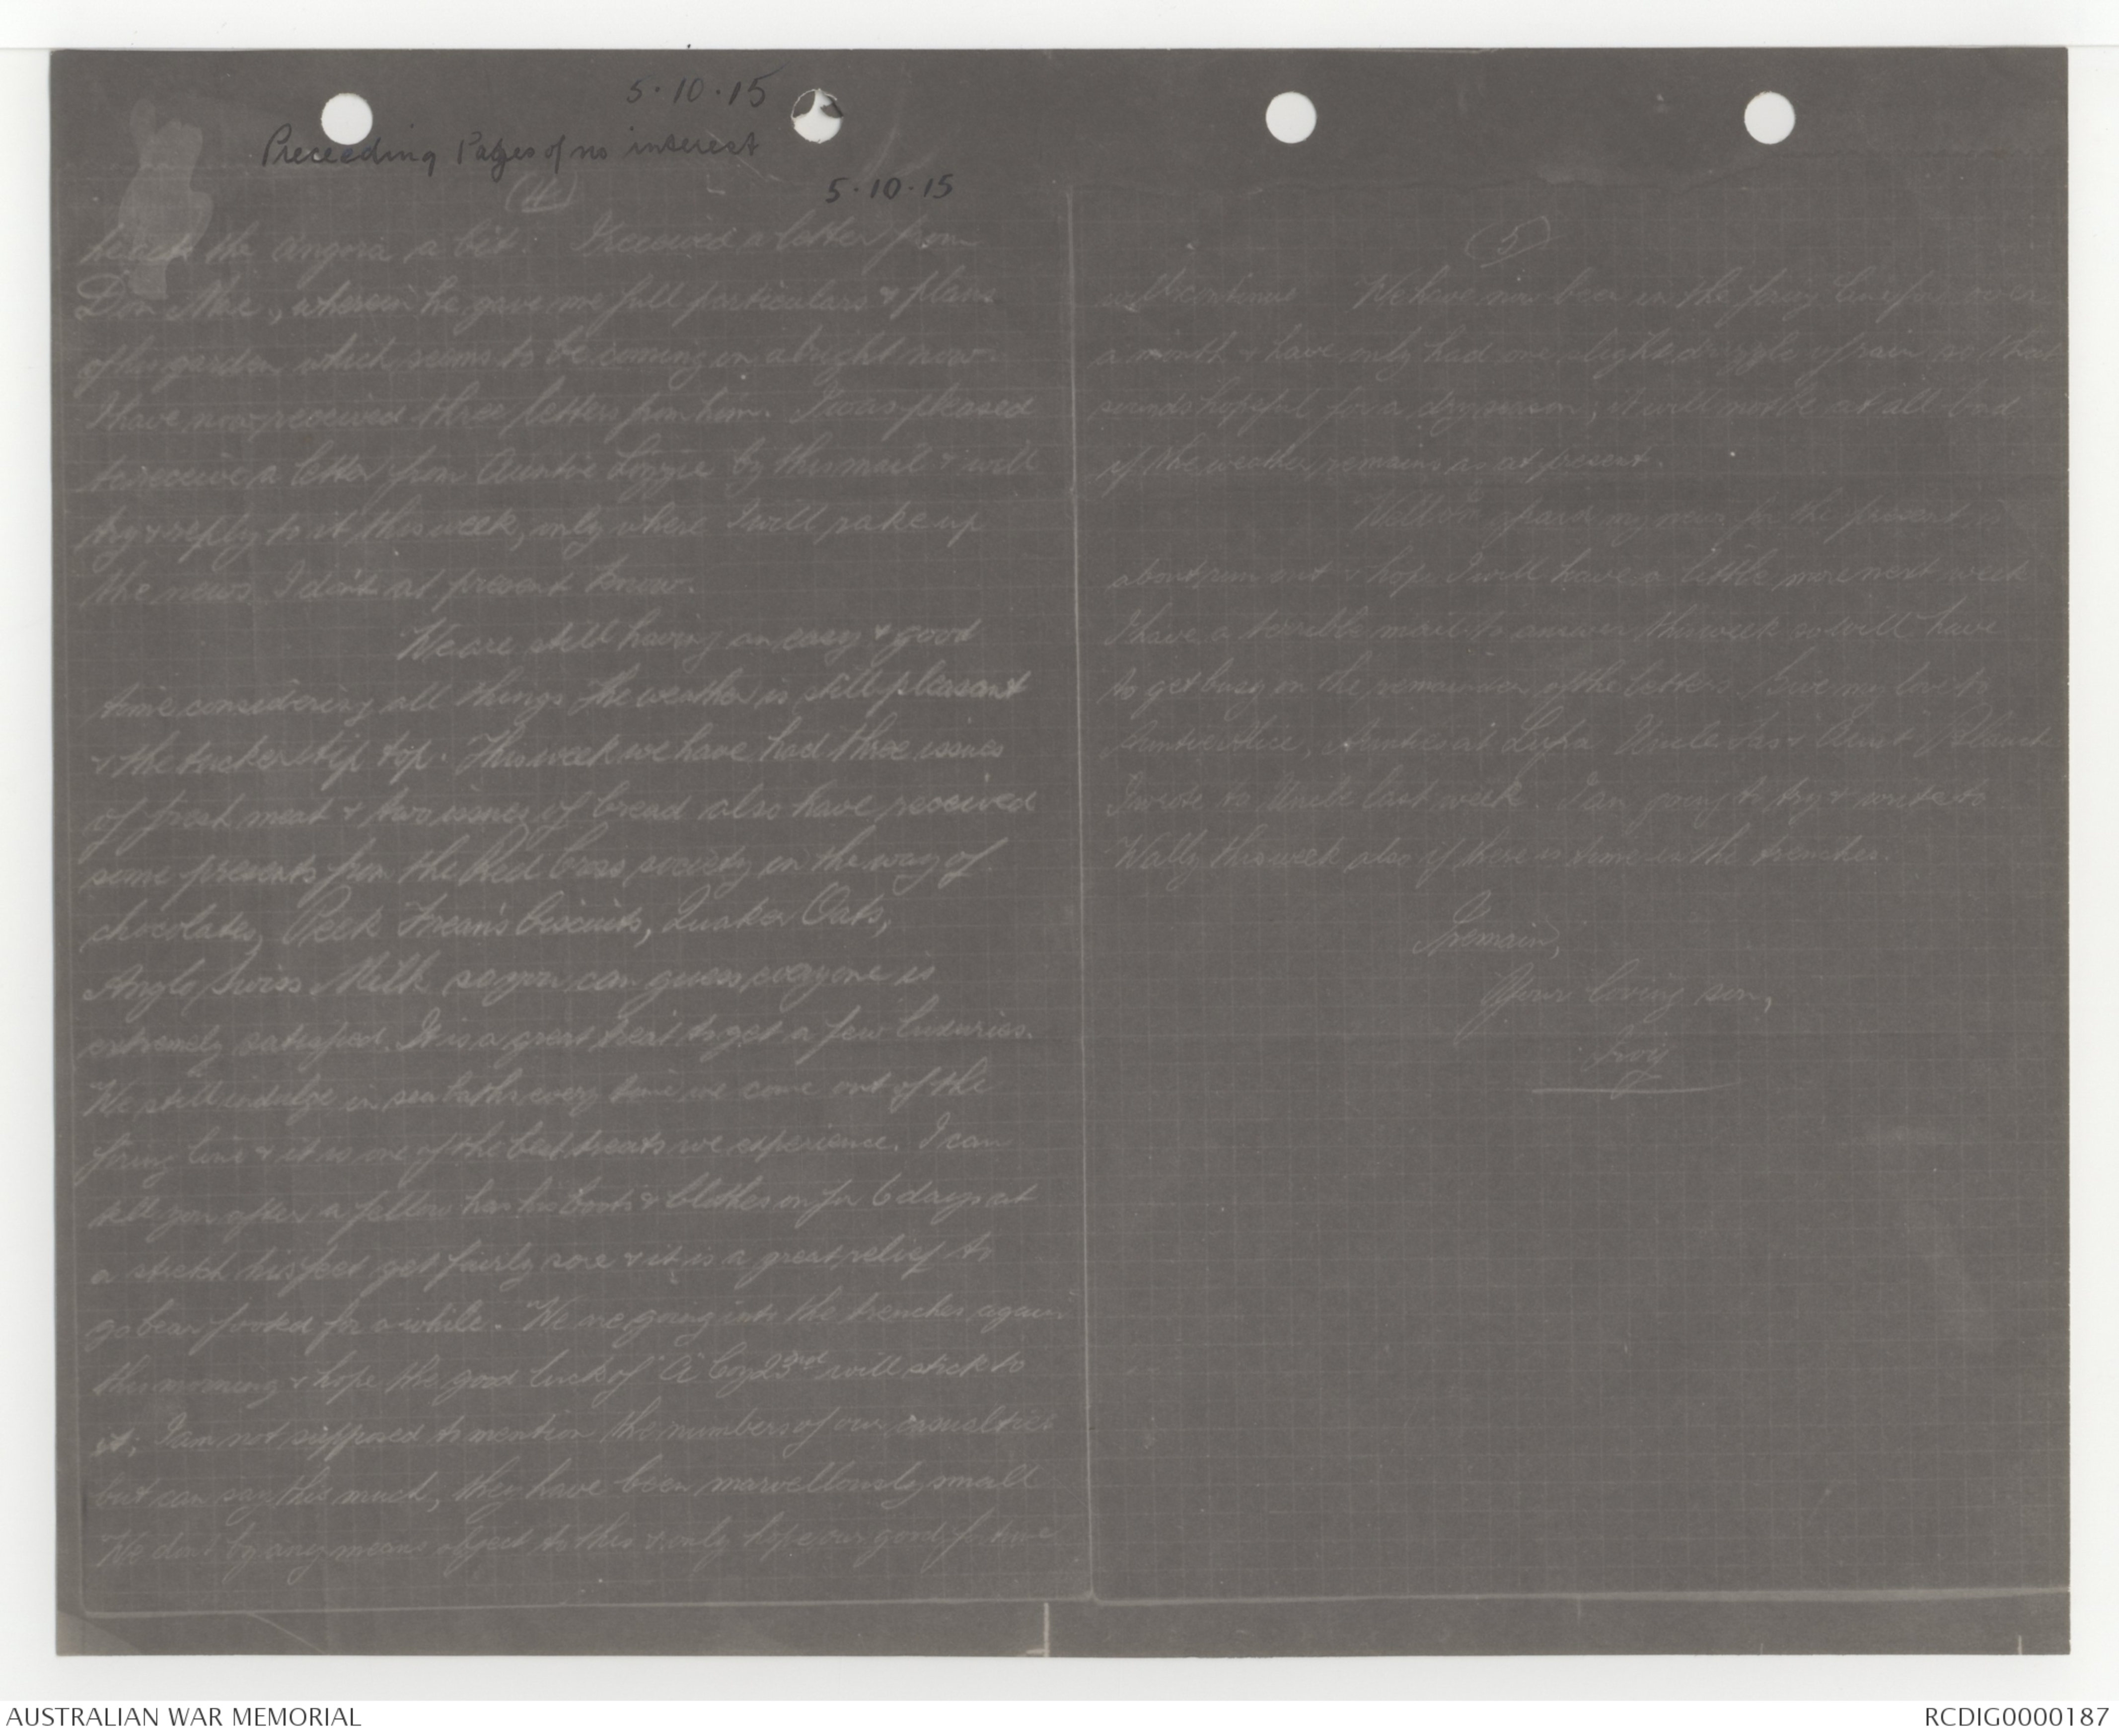 5.10.15
Preceeding Pages of no interest
5.10.15
(4)
the angora a bit. I received a letter from
Don Mac, wherein he gave me full particulars & plans
of his garden which seems to be coming on alright now
I have now received three letters from him. I was pleased
to receive a letter from Auntie Lizzie by this mail & will
try & reply to it this week, only where I will rake up
the news I don't at present know.
We are still having an easy & good
time considering all things the weather is still pleasant
& the tucker tip top. This week we have had three issues
of fresh meat & two issues of bread also have received
some presents from the Red Cross society in the way of
chocolates, Peek Frean's biscuits, Quaker Oats,
Anglo Swiss Milk so you can guess everyone is
extremely satisfied. It is a great treat to get a few luxuries.
We still indulge in sea baths every time we come out of the
firing line & it is one of the best treats we experience. I can
tell you after a fellow has his boots & clothes on for 6 days at
a stretch his feet get fairly sore & it is a great relief to
go bear footed for a while. We are going into the trenches again
this morning & hope the good luck of "A" Coy 23rd will stick to
it. I am not supposed to mention the numbers of our casualties
but can say this much, they have been marvellously small
We don't by any means object to this & only hope our good fortune
(5)
will continue We have now been in the firing line for over
a month & have only had one light drizzle of rain so that
sounds hopeful for a dry season, it will not be at all bad
if the weather remains as at present.
Well I'm afraid my news for the present is
about run out & hope I will have a little more next week
I have a terrible mail to answer this week so will have
to get busy on the remainder of the letters. Give my love to
Auntie Alice, Aunties at Uncle Jas & Aunt
I wrote to Uncle last week. I am going to try & write to
Wally this week also if there is time in the trenches.
I remain,
Your loving son,
AUSTRALIAN WAR MEMORIAL
RCDIG0000187